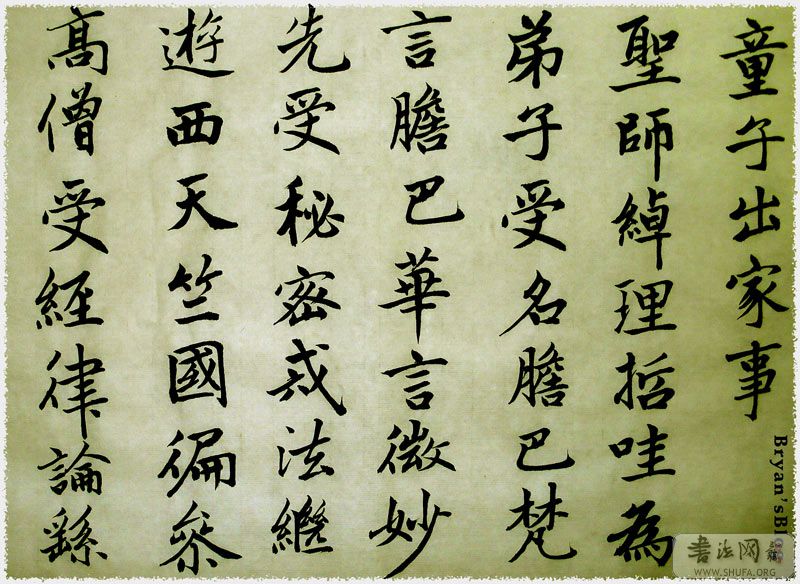 童子出家事
聖師綽理哲哇為
弟子受名膽巴梵
言膽巴華言微妙
先受秘密戒法繼
遊西天竺國徧參
高僧受經律論繇
Bryan's
书法网
WWW.SHUFA.ORG